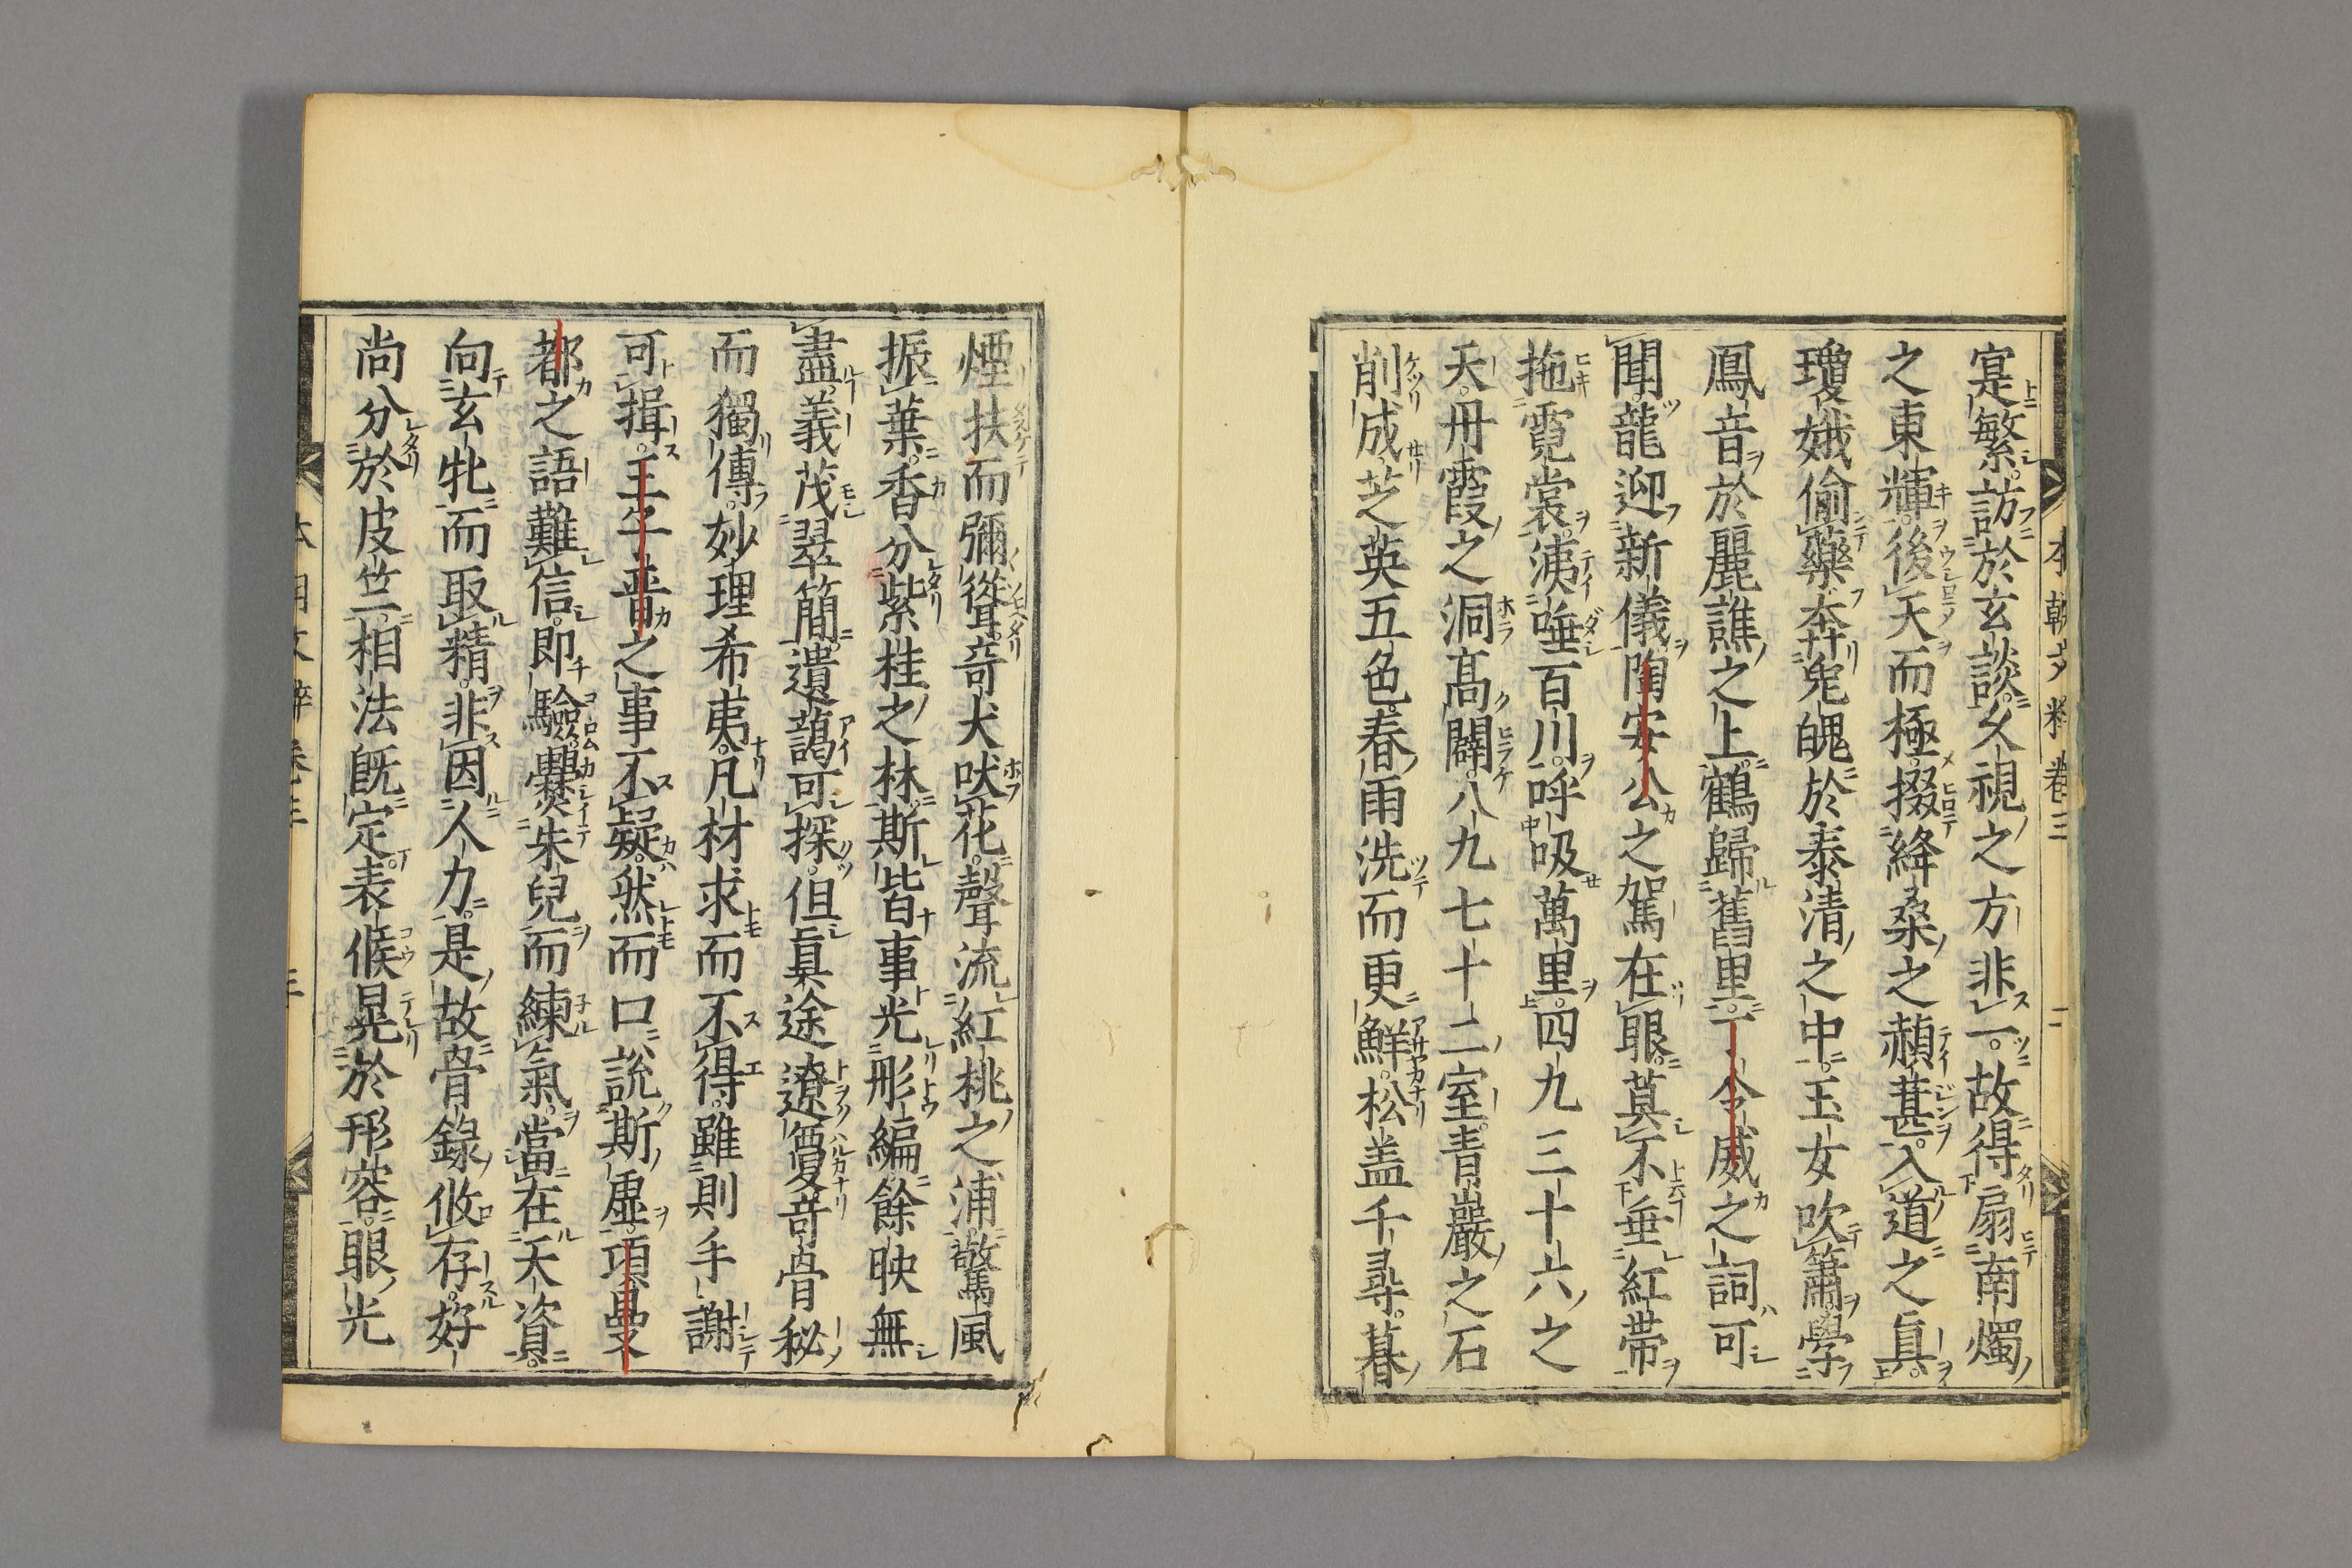 寔繁。訪於玄談。久視之方非一。故得扇南燭
之東輝。後天而極。掇絳桑之赬葚。入道之真。
瓊娥偷藥。奔兔魄於泰清之中。玉女吹簫。學
鳳音於麗譙之上。鶴歸舊里。丁令威之詞可
聞。龍迎新儀。陶安公之駕在眼。莫不垂紅帶
拖霓裳。洟唾百川。呼吸萬里。四九三十六之
天。丹霞之洞高闢。八九七十二室。青巖之石
削成。芝英五色。春雨洗而更鮮。松蓋千尋。暮
煙扶而彌聳。奇犬吠花。聲流紅桃之浦。驚風
振葉。香分紫桂之林。斯皆事光彤編。餘映無
盡。義茂翠簡。遺藹可探。但真途遼夐。奇骨秘
而獨傳。妙理希夷。凡材求而不得。雖則手謝
可揖。王子晉之事不疑。然而口說斯虛。項曼
都之語難信。即驗爨朱兒而練氣。當在天資。
向玄牝而取精。非因人力。是故骨錄攸存。好
尚分於皮竺。相法既定。表候晃於形容。眼光
本朝文粹卷三
二
本朝文粹卷三
三